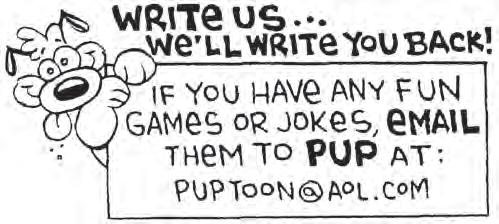 WRITE US...
We'LL WRITE YOU BACK!
IF YOU HAVE ANY FUN
GAMES OR JOKES, EMAIL
THEM TO PUP AT:
PUPTOON@AOL.COM